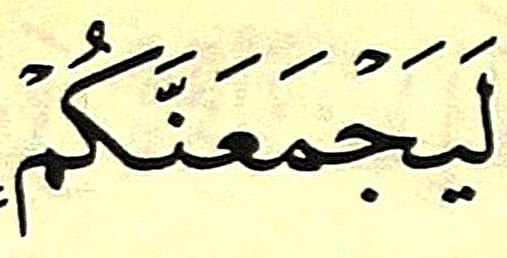 لَيَجْمَعَنَّكُمْ